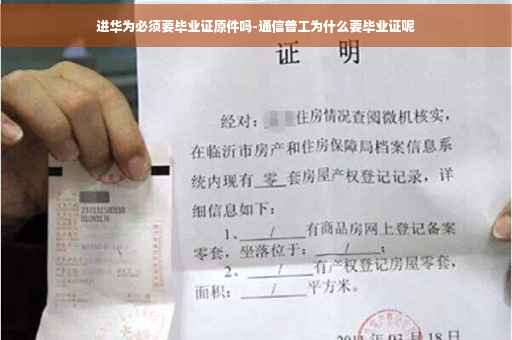 进华为必须要毕业证原件吗-通信普工为什么要毕业证呢
证 明
经对：住房情况查阅微机核实，
在临沂市房产和住房保障局档案信息系
统内现有 零 套房屋产权登记记录，详
细信息如下：
1、 / 有商品房网上登记备案
零套，坐落位于： / ；
2、 / 有产权登记房屋零套，
面积： / 平方米。
03月18日